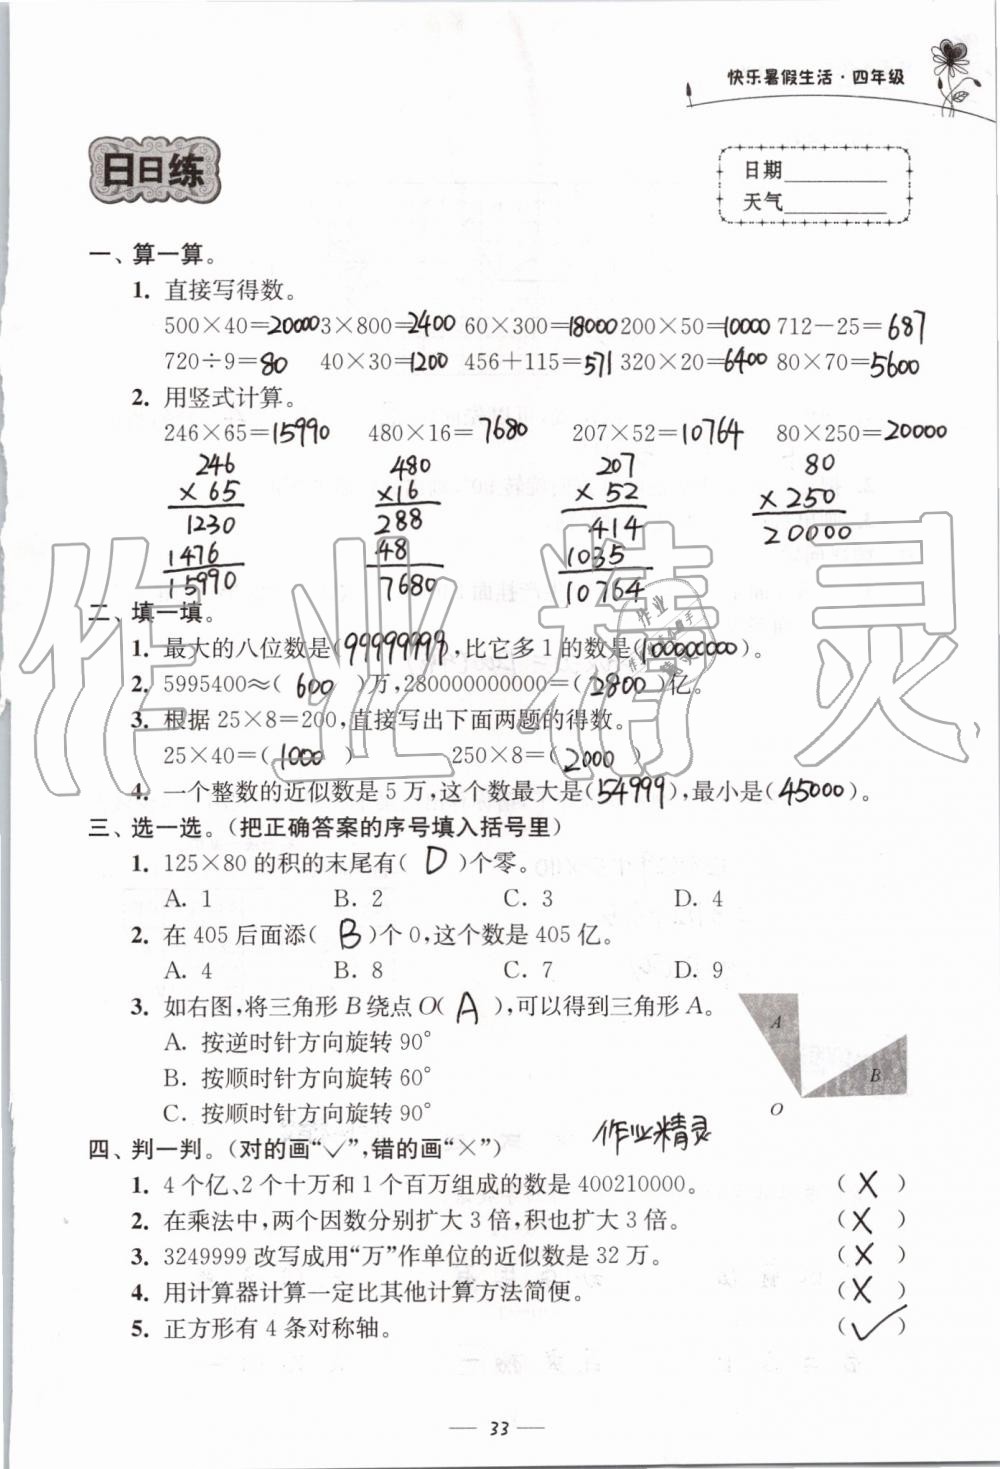 快乐暑假生活·四年级
日日练
日期
天气
一、算一算。
1. 直接写得数。
500×40=20000 3×800=2400 60×300=18000 200×50=10000 712-25=687
720÷9=80 40×30=1200 456+115=571 320×20=6400 80×70=5600
2. 用竖式计算。
246×65=15990 480×16=7680 207×52=10764 80×250=20000
246 480 207 80
×65 ×16 ×52 ×250
1230 288 414 20000
1476 48 1035
15990 7680 10764
二、填一填。
1. 最大的八位数是(99999999),比它多1的数是(100000000)。
2. 5995400≈(600)万,280000000000=(2800)亿。
3. 根据25×8=200,直接写出下面两题的得数。
25×40=(1000) 250×8=(2000)
4. 一个整数的近似数是5万,这个数最大是(54999),最小是(45000)。
三、选一选。(把正确答案的序号填入括号里)
1. 125×80的积的末尾有(D)个零。
A. 1 B. 2 C. 3 D. 4
2. 在405后面添(B)个0,这个数是405亿。
A. 4 B. 8 C. 7 D. 9
3. 如右图,将三角形B绕点O(A),可以得到三角形A。
A. 按逆时针方向旋转90°
B. 按顺时针方向旋转60°
C. 按顺时针方向旋转90°
A
B
O
作业精灵
四、判一判。(对的画“✓”,错的画“×”)
1. 4个亿、2个十万和1个百万组成的数是400210000。 (×)
2. 在乘法中,两个因数分别扩大3倍,积也扩大3倍。 (×)
3. 3249999改写成用“万”作单位的近似数是32万。 (×)
4. 用计算器计算一定比其他计算方法简便。 (×)
5. 正方形有4条对称轴。 (✓)
33
作业精灵